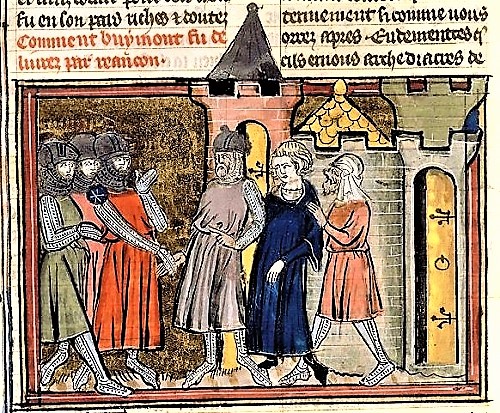 fu en son pais riches & doutez
Comment buymont fu de
liurez par reancon.
si comme uous
orrez apres. Endementres q
cils ernous archediacres de